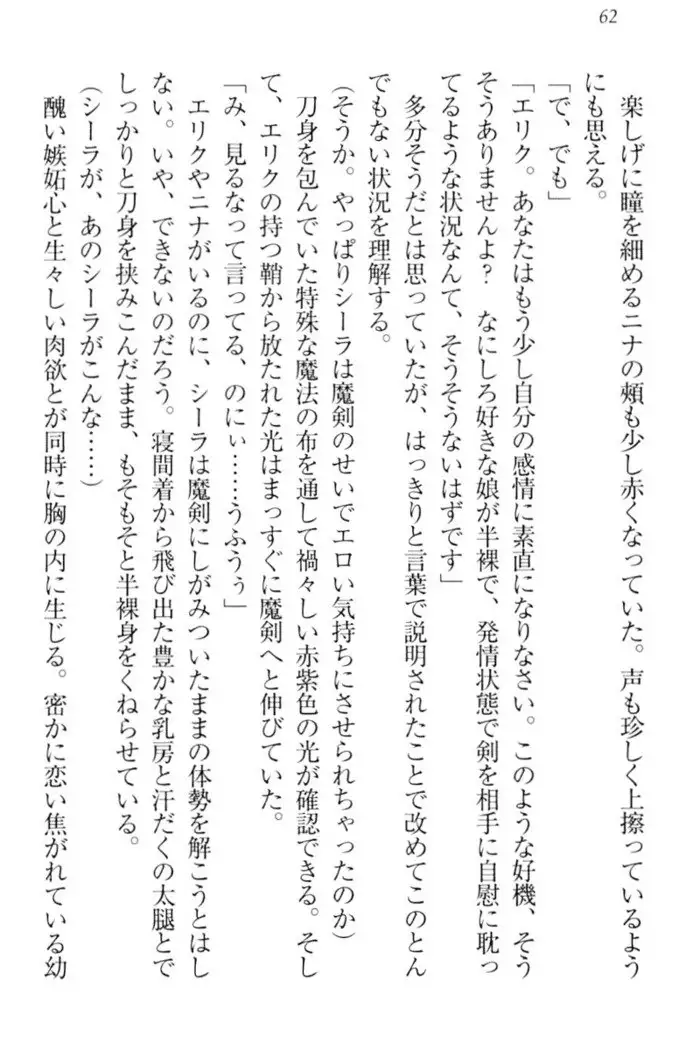 62
楽しげに瞳を細めるニナの頬も少し赤くなっていた。声も珍しく上擦っているよう
にも思える。
「で、でも」
「エリク。あなたはもう少し自分の感情に素直になりなさい。このような好機、そう
そうありませんよ? なにしろ好きな娘が半裸で、発情状態で剣を相手に自慰に耽っ
てるような状況なんて、そうそうないはずです」
多分そうだとは思っていたが、はっきりと言葉で説明されたことで改めてこのとん
でもない状況を理解する。
(そうか。やっぱりシーラは魔剣のせいでエロい気持ちにさせられちゃったのか)
刀身を包んでいた特殊な魔法の布を通して禍々しい赤紫色の光が確認できる。そし
て、エリクの持つ鞘から放たれた光はまっすぐに魔剣へと伸びていた。
「み、見るなって言ってる、のにぃ……うふうぅ」
エリクやニナがいるのに、シーラは魔剣にしがみついたままの体勢を解こうとはし
ない。いや、できないのだろう。寝間着から飛び出た豊かな乳房と汗だくの太腿とで
しっかりと刀身を挟みこんだまま、もそもそと半裸身をくねらせている。
(シーラが、あのシーラがこんな……)
醜い嫉妬心と生々しい肉欲とが同時に胸の内に生じる。密かに恋い焦がれている幼